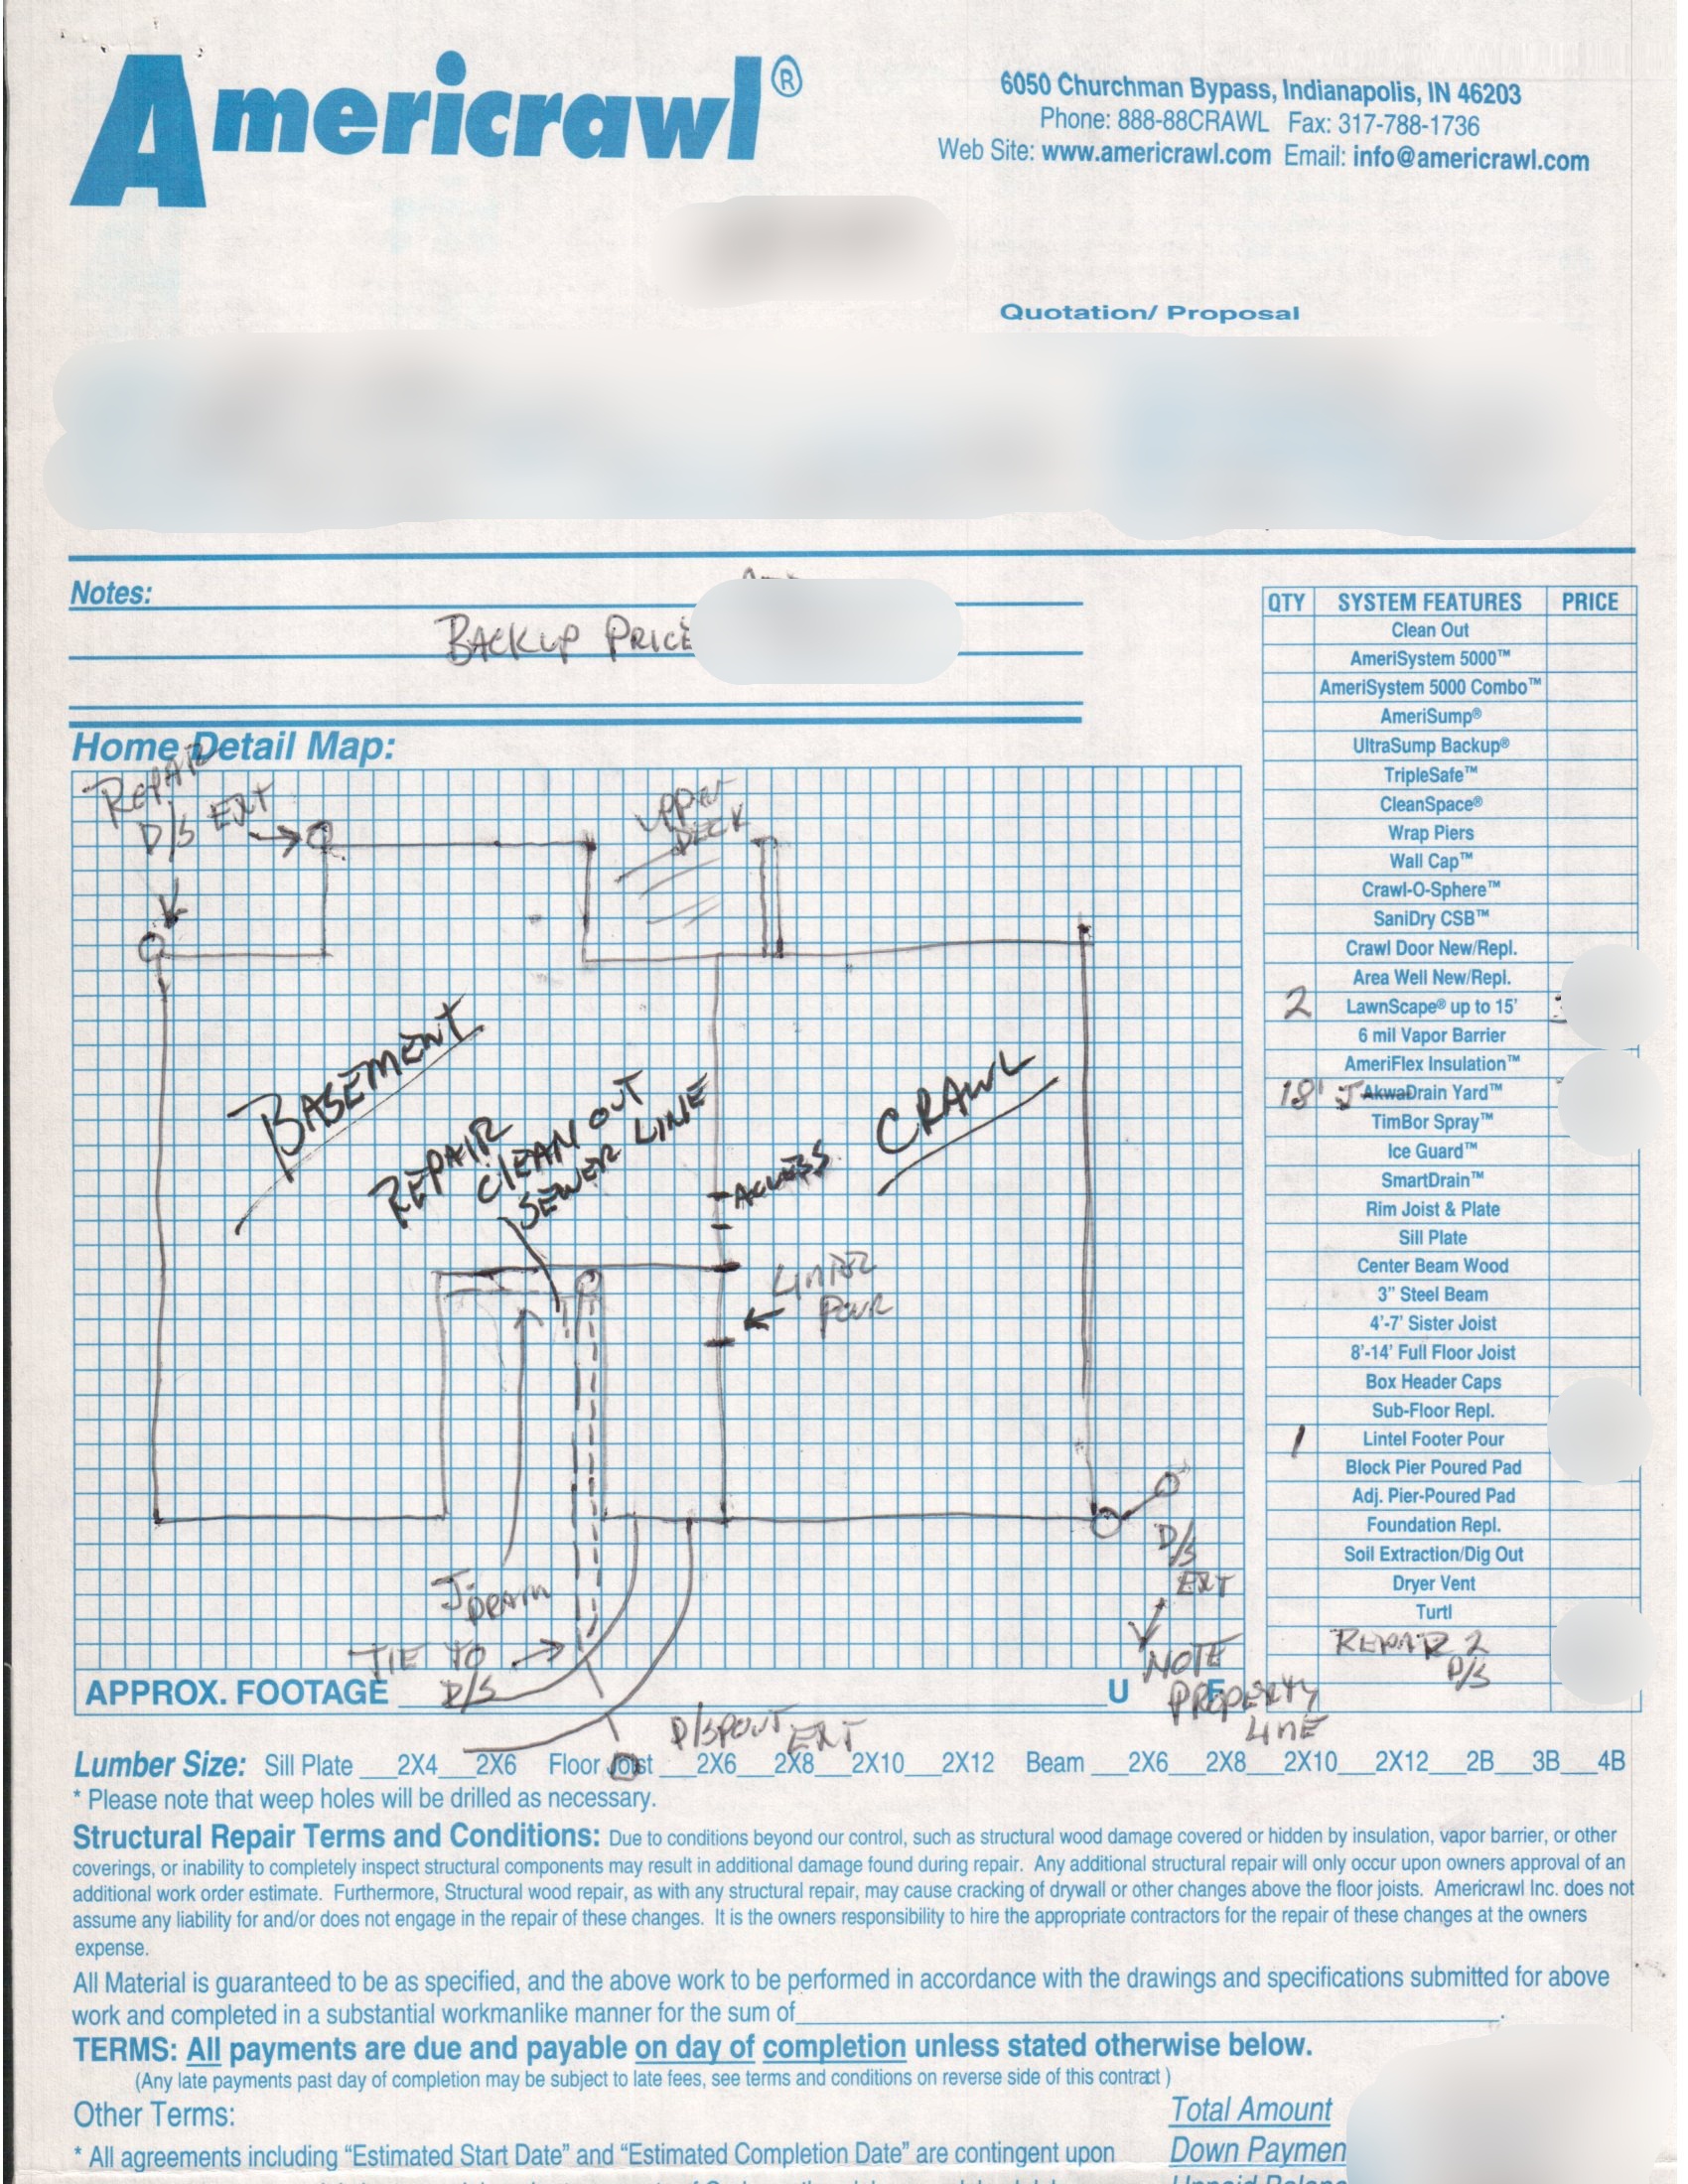 Americrawl®
6050 Churchman Bypass, Indianapolis, IN 46203
Phone: 888-88CRAWL Fax: 317-788-1736
Web Site: www.americrawl.com Email: info@americrawl.com
Quotation/ Proposal
Notes:
BACKUP PRICE
Home Detail Map:
REPAIR
D/S EXT
UPPER
DECK
BASEMENT
REPAIR
CLEAN OUT
SEWER LINE
ACCESS
CRAWL
LINTEL
POUR
J DRAIN
TIE TO
D/S
D/SPOUT EXT
D/S
EXT
NOTE
PROPERTY
LINE
QTY SYSTEM FEATURES PRICE
Clean Out
AmeriSystem 5000™
AmeriSystem 5000 Combo™
AmeriSump®
UltraSump Backup®
TripleSafe™
CleanSpace®
Wrap Piers
Wall Cap™
Crawl-O-Sphere™
SaniDry CSB™
Crawl Door New/Repl.
Area Well New/Repl.
2 LawnScape® up to 15'
6 mil Vapor Barrier
AmeriFlex Insulation™
18' J AkwaDrain Yard™
TimBor Spray™
Ice Guard™
SmartDrain™
Rim Joist & Plate
Sill Plate
Center Beam Wood
3" Steel Beam
4'-7' Sister Joist
8'-14' Full Floor Joist
Box Header Caps
Sub-Floor Repl.
1 Lintel Footer Pour
Block Pier Poured Pad
Adj. Pier-Poured Pad
Foundation Repl.
Soil Extraction/Dig Out
Dryer Vent
Turtl
REPAIR 2
D/S
APPROX. FOOTAGE U F
Lumber Size: Sill Plate ___2X4___2X6 Floor Joist ___2X6___2X8___2X10___2X12 Beam ___2X6___2X8___2X10___2X12___2B___3B___4B
* Please note that weep holes will be drilled as necessary.
Structural Repair Terms and Conditions: Due to conditions beyond our control, such as structural wood damage covered or hidden by insulation, vapor barrier, or other
coverings, or inability to completely inspect structural components may result in additional damage found during repair. Any additional structural repair will only occur upon owners approval of an
additional work order estimate. Furthermore, Structural wood repair, as with any structural repair, may cause cracking of drywall or other changes above the floor joists. Americrawl Inc. does not
assume any liability for and/or does not engage in the repair of these changes. It is the owners responsibility to hire the appropriate contractors for the repair of these changes at the owners
expense.
All Material is guaranteed to be as specified, and the above work to be performed in accordance with the drawings and specifications submitted for above
work and completed in a substantial workmanlike manner for the sum of
TERMS: All payments are due and payable on day of completion unless stated otherwise below.
(Any late payments past day of completion may be subject to late fees, see terms and conditions on reverse side of this contract )
Other Terms:
Total Amount
* All agreements including "Estimated Start Date" and "Estimated Completion Date" are contingent upon
Down Paymen